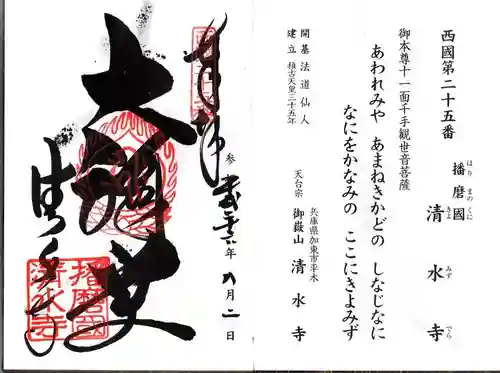 西國第二十五番
播磨國 清水寺
はり まの くに きよ みず でら
御本尊十一面千手観世音菩薩
あわれみや あまねきかどの しなじなに
なにをかなみの ここにきよみず
開基 法道仙人
建立 推古天皇三十五年
兵庫県加東市平木
天台宗 御嶽山 清水寺
奉拝
大悲
清水寺
年 八月二日
播磨國
清水寺